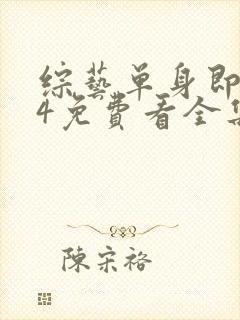 綜藝單身即
4免費看全集
陳宋裕